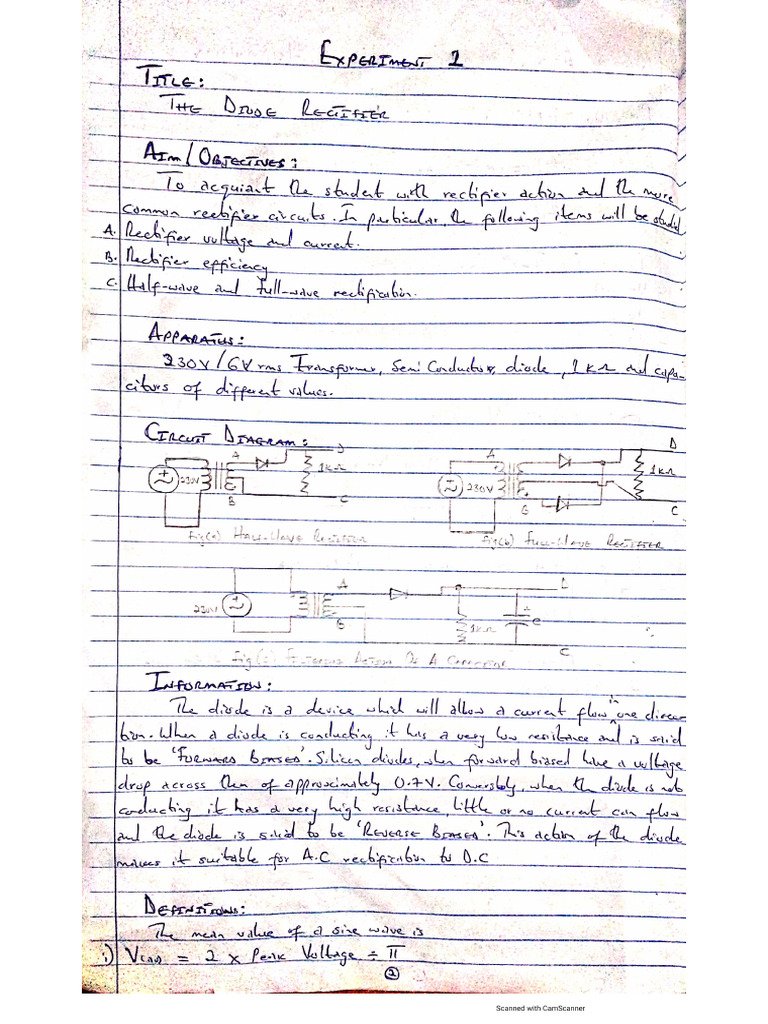 EXPERIMENT 1
TITLE:
THE DIODE RECTIFIER
AIM/OBJECTIVES:
To acquiant the student with rectifier action and the more
common rectifier circuits. In particular, the following items will be studied
A. Rectifier voltage and current.
B. Rectifier efficiency
C. Half-wave and Full-wave rectification.
APPARATUS:
230V/6V rms Transformer, Semi Conductor, diode, 1kΩ and capa-
citors of different values.
CIRCUIT DIAGRAM:
A D
230V 1kΩ
B C
Fig(a) HALF-WAVE RECTIFIER
A D
230V 1kΩ
B C
Fig(b) FULL-WAVE RECTIFIER
A D
230V 1kΩ + C
B C
Fig(c) FILTERING ACTION OF A CAPACITOR
INFORMATION:
The diode is a device which will allow a current flow in one direc-
tion. When a diode is conducting it has a very low resistance and is said
to be 'FORWARD BIASED'. Silicon diodes, when forward biased have a voltage
drop across them of approximately 0.7V. Conversely, when the diode is not
conducting it has a very high resistance, little or no current can flow
and the diode is said to be 'REVERSE BIASED'. This action of the diode
makes it suitable for A.C rectification to D.C
DEFINITIONS:
The mean value of a sine wave is
i) V(av) = 2 x Peak Voltage ÷ π
2
Scanned with CamScanner